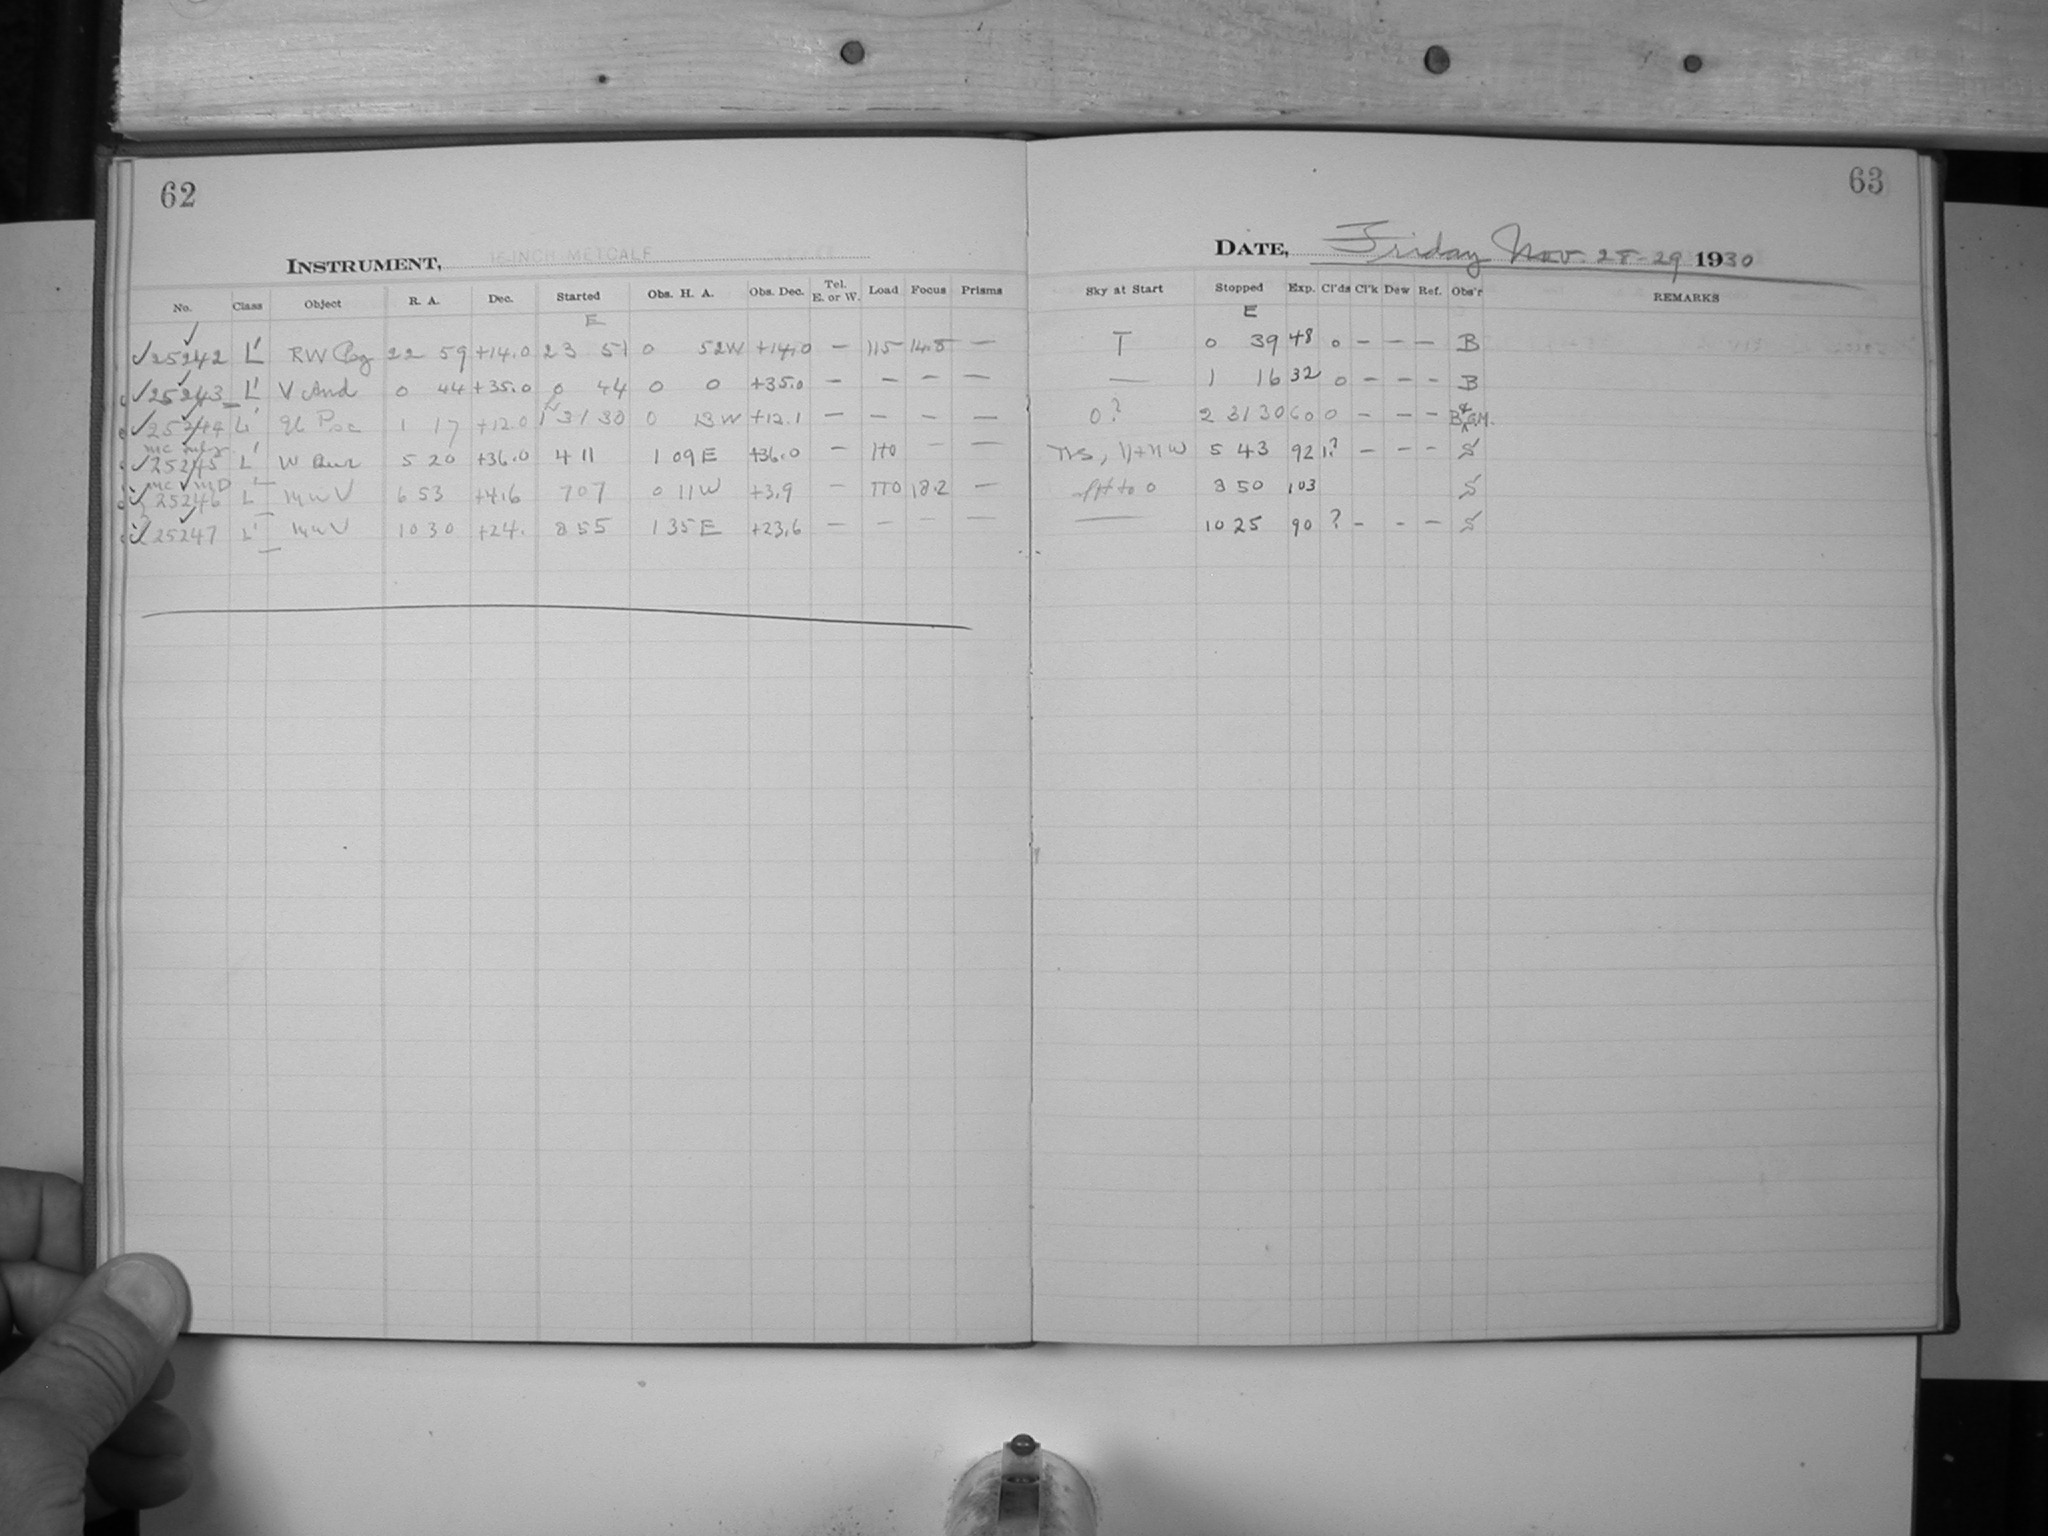 62
INSTRUMENT, 16-INCH METCALF
No. Class Object R. A. Dec. Started Obs. H. A. Obs. Dec. Tel. E. or W. Load Focus Prisms
E
25242 L' RW Peg 22 59 +14.0 23 51 0 52W +14.0 — 115 14.8 —
25243 L' V And 0 44 +35.0 0 44 0 0 +35.0 — — — —
25244 L' Psc 1 17 +12.0 1 31 30 0 13W +12.1 — — — —
25245 L' W Aur 5 20 +36.0 4 11 1 09E +36.0 — 110 — —
25246 L' MWV 6 53 +4.6 7 07 0 11W +3.9 — 110 18.2 —
25247 L' MWV 10 30 +24. 8 55 1 35E +23.6 — — — —
63
DATE, Friday Nov. 28-29 1930
Sky at Start Stopped Exp. Cl'ds Cl'k Dew Ref. Obs'r REMARKS
E
T 0 39 48 0 — — — B
— 1 16 32 0 — — — B
0? 2 31 30 60 0 — — — B & GM.
5 43 92 1? — — — S
to 0 8 50 103 S
— 10 25 90 ? — — — S